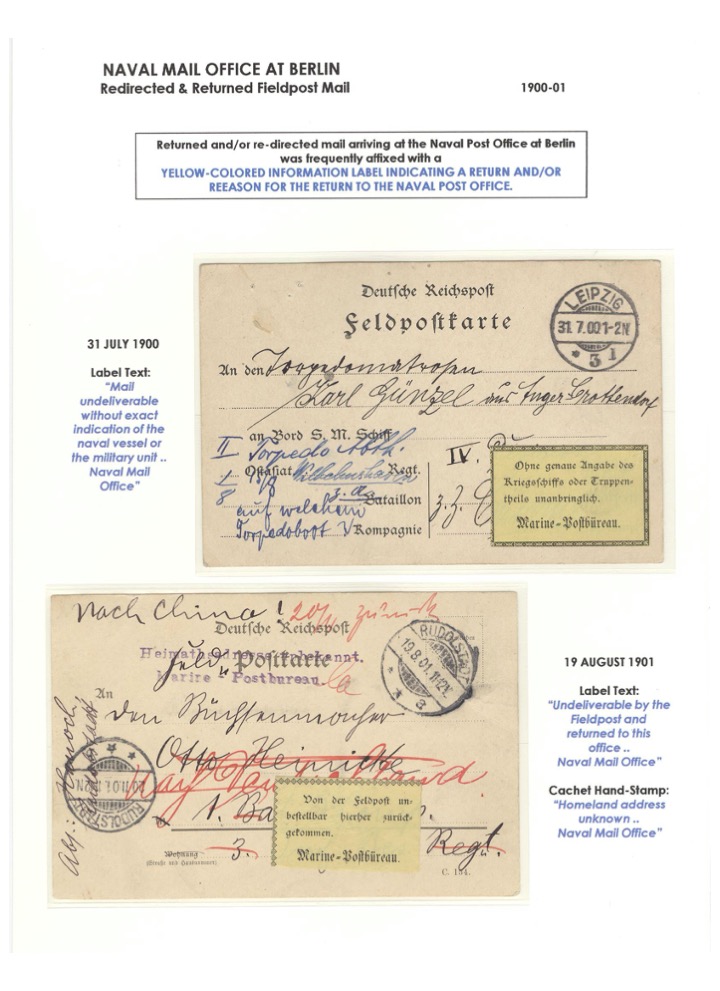 NAVAL MAIL OFFICE AT BERLIN
Redirected & Returned Fieldpost Mail
1900-01
Returned and/or re-directed mail arriving at the Naval Post Office at Berlin
was frequently affixed with a
YELLOW-COLORED INFORMATION LABEL INDICATING A RETURN AND/OR
REEASON FOR THE RETURN TO THE NAVAL POST OFFICE.
31 JULY 1900
Label Text:
“Mail
undeliverable
without exact
indication of the
naval vessel or
the military unit ..
Naval Mail
Office”
Deutsche Reichspost
Feldpostkarte
LEIPZIG
31.7.00 1-2N
* 3 1
An den Torpedomatrosen
Karl Günzel aus Anger Crottendorf
an Bord S. M. Schiff
II Torpedo Abth.
Ostasiat. Wilhelmshaven Regt.
z. Z. Bataillon
auf welchem
Torpedoboot ? Kompagnie
IV.
Ohne genaue Angabe des
Kriegsschiffs oder Truppen-
theils unanbringlich.
Marine-Postbüreau.
Nach China! zurück
Deutsche Reichspost
Heimathsadresse unbekannt.
Feld Postkarte
Marine Postbureau
RUDOLSTADT
19.8.01.11-12V.
* 3
An
den Büchsenmacher
Otto Heinicke
RUDOLSTADT
1. Ba
3. Regt.
Wohnung
(Straße und Hausnummer)
Von der Feldpost un-
bestellbar hierher zurück-
gekommen.
Marine-Postbüreau.
C. 154.
19 AUGUST 1901
Label Text:
“Undeliverable by the
Fieldpost and
returned to this
office ..
Naval Mail Office”
Cachet Hand-Stamp:
“Homeland address
unknown ..
Naval Mail Office”